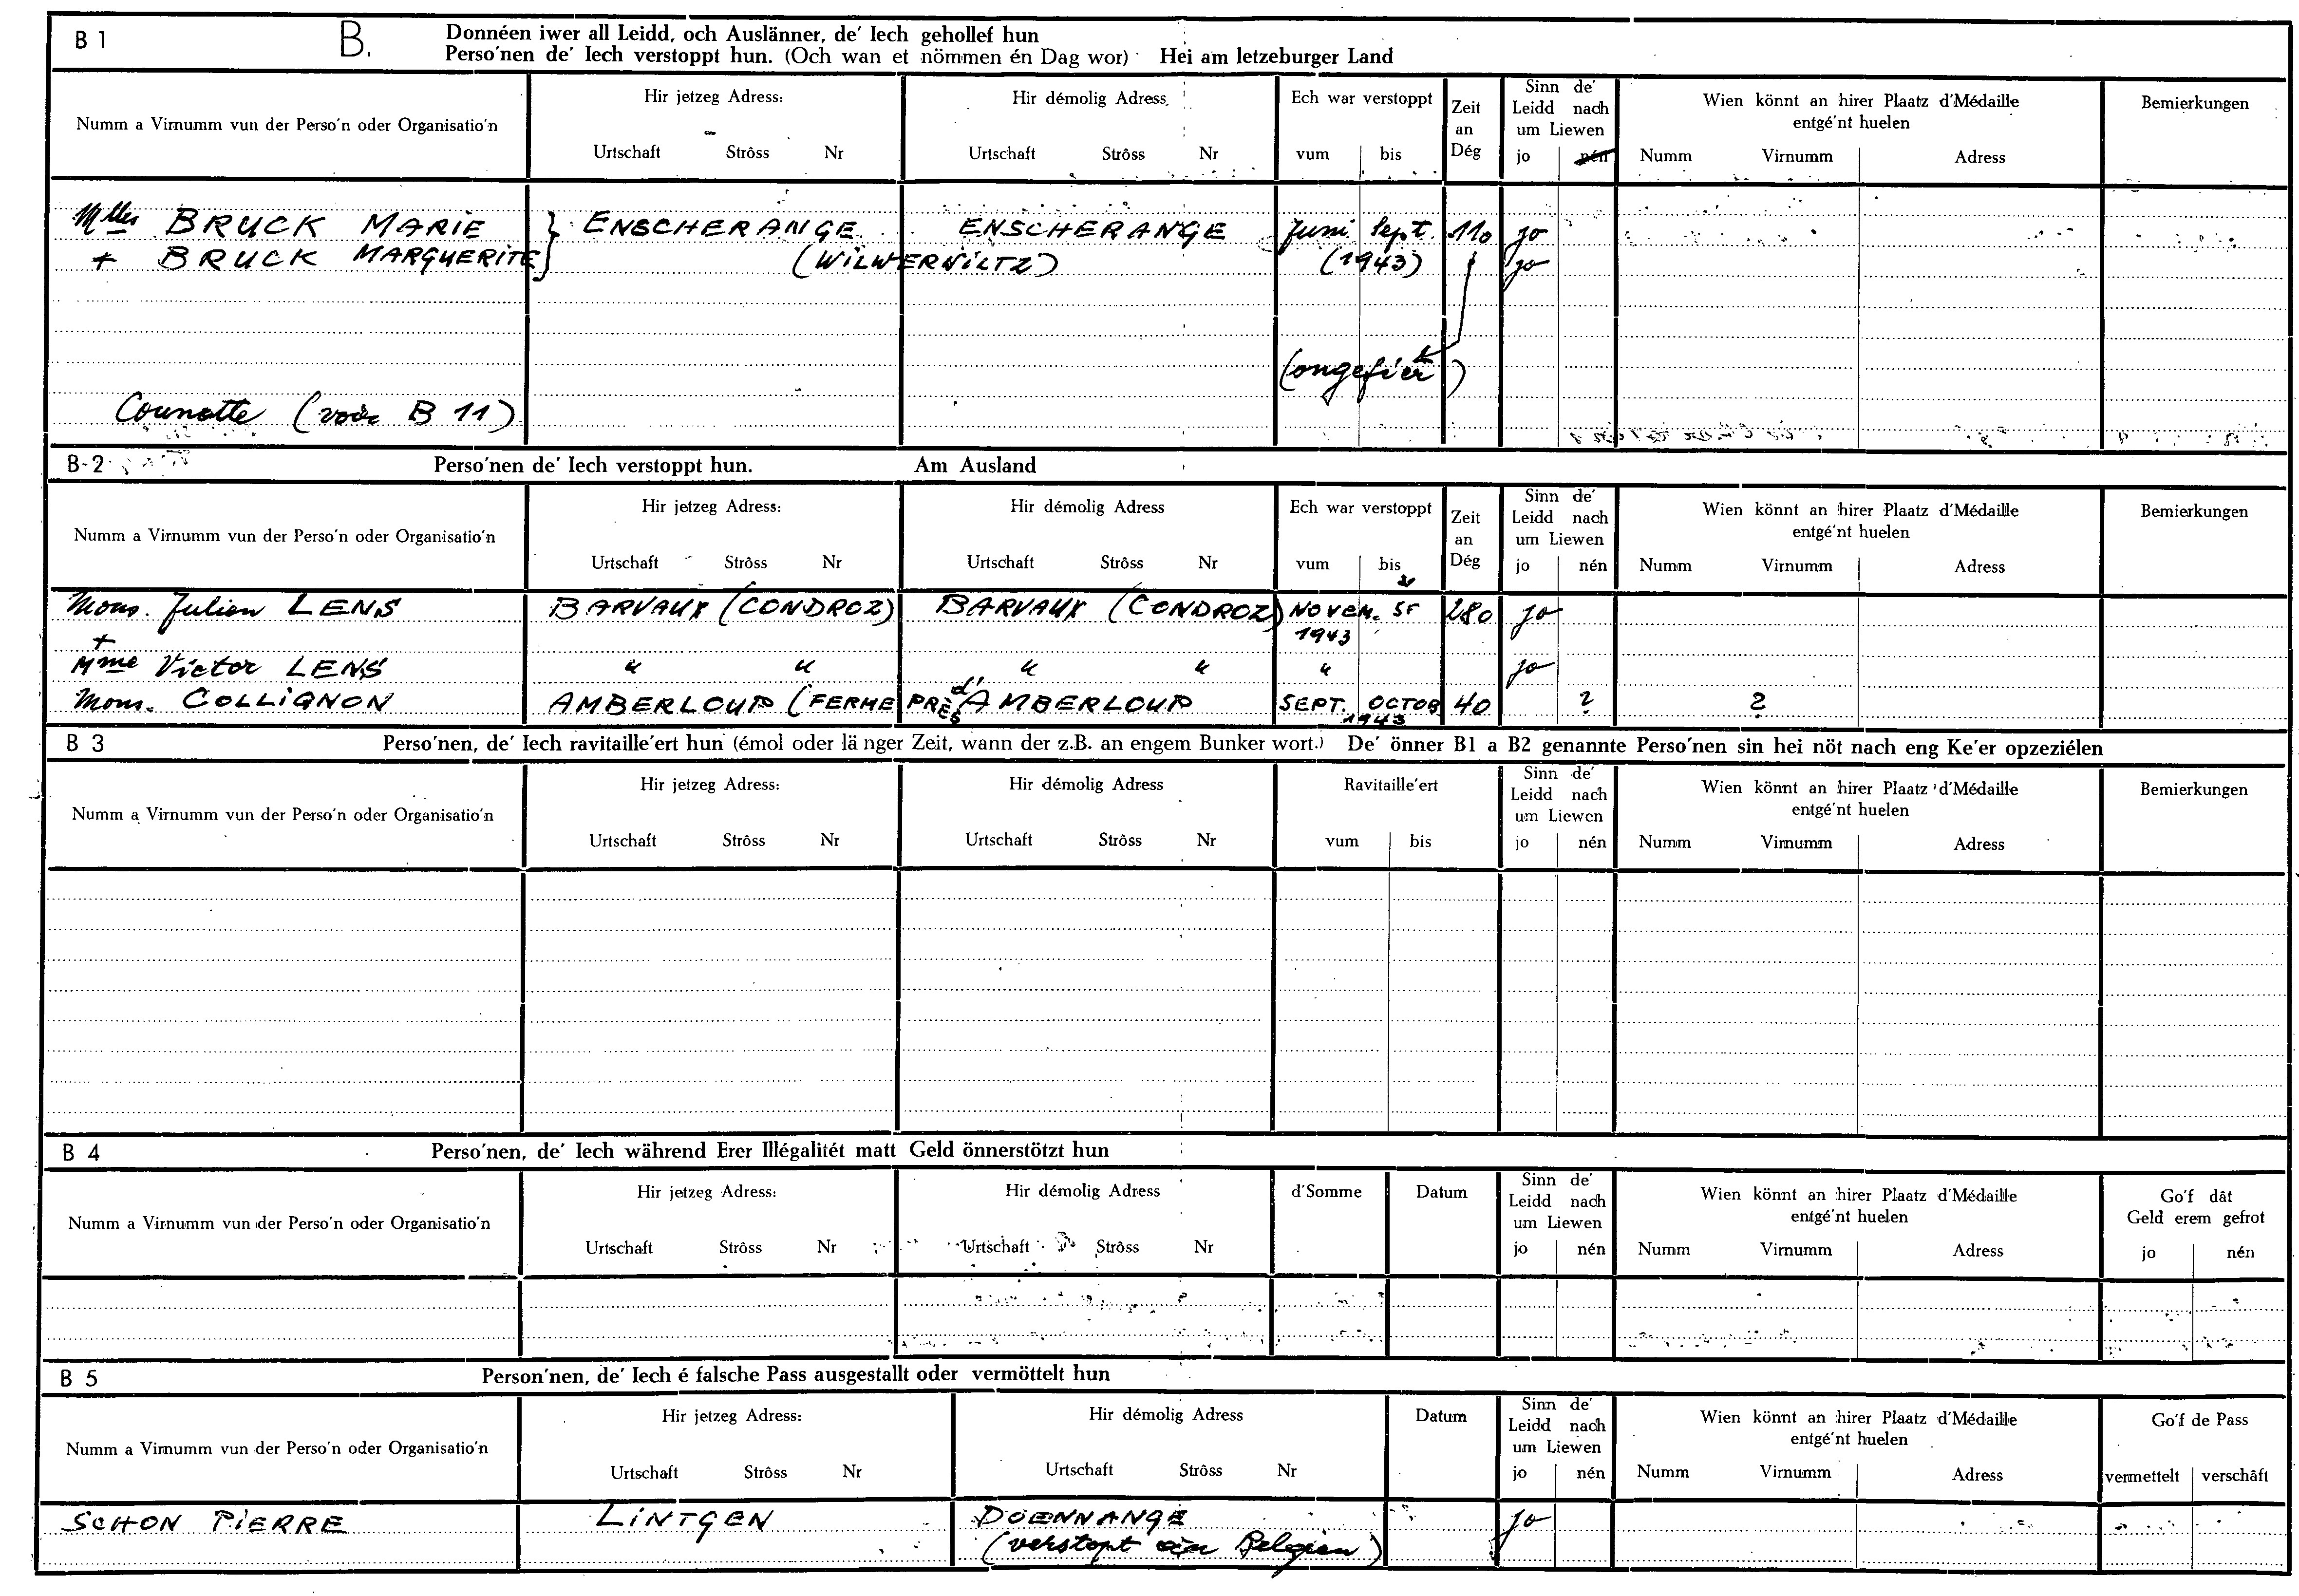 B 1 B. Donnéen iwer all Leidd, och Auslänner, de' Iech gehollef hun
Perso'nen de' Iech verstoppt hun. (Och wan et nömmen én Dag wor) Hei am letzeburger Land
Numm a Virnumm vun der Perso'n oder Organisatio'n
Hir jetzeg Adress:
Urtschaft Strôss Nr
Hir démolig Adress
Urtschaft Strôss Nr
Ech war verstoppt
vum bis
Zeit
an
Dég
Sinn de'
Leidd nach
um Liewen
jo nén
Wien könnt an hirer Plaatz d'Médaille
entgé'nt huelen
Numm Virnumm Adress
Bemierkungen
Mlles BRUCK MARIE } ENSCHERANGE ENSCHERANGE Juni Sept. 110 jo
+ BRUCK MARGUERITE (WILWERWILTZ) (1943) jo
(ongeféier)
Counotte (voir B 11)
B-2 Perso'nen de' Iech verstoppt hun. Am Ausland
Numm a Virnumm vun der Perso'n oder Organisatio'n
Hir jetzeg Adress:
Urtschaft Strôss Nr
Hir démolig Adress
Urtschaft Strôss Nr
Ech war verstoppt
vum bis
Zeit
an
Dég
Sinn de'
Leidd nach
um Liewen
jo nén
Wien könnt an hirer Plaatz d'Médaille
entgé'nt huelen
Numm Virnumm Adress
Bemierkungen
Mons. Julien LENS BARVAUX (CONDROZ) BARVAUX (CONDROZ) NOVEM. 280 jo
+ 1943
Mme Victor LENS " " " " " jo
Mons. COLLIGNON AMBERLOUP (FERME PRÈS d'AMBERLOUP SEPT. OCTOB 40 ? ?
1943
B 3 Perso'nen, de' Iech ravitaille'ert hun (émol oder länger Zeit, wann der z.B. an engem Bunker wort.) De' önner B1 a B2 genannte Perso'nen sin hei nöt nach eng Ke'er opzeziélen
Numm a Virnumm vun der Perso'n oder Organisatio'n
Hir jetzeg Adress:
Urtschaft Strôss Nr
Hir démolig Adress
Urtschaft Strôss Nr
Ravitaille'ert
vum bis
Sinn de'
Leidd nach
um Liewen
jo nén
Wien könnt an hirer Plaatz d'Médaille
entgé'nt huelen
Numm Virnumm Adress
Bemierkungen
B 4 Perso'nen, de' Iech während Erer Illégalitét matt Geld önnerstötzt hun
Numm a Virnumm vun der Perso'n oder Organisatio'n
Hir jetzeg Adress:
Urtschaft Strôss Nr
Hir démolig Adress
Urtschaft Strôss Nr
d'Somme
Datum
Sinn de'
Leidd nach
um Liewen
jo nén
Wien könnt an hirer Plaatz d'Médaille
entgé'nt huelen
Numm Virnumm Adress
Go'f dât
Geld erem gefrot
jo nén
B 5 Person'nen, de' Iech é falsche Pass ausgestallt oder vermöttelt hun
Numm a Virnumm vun der Perso'n oder Organisatio'n
Hir jetzeg Adress:
Urtschaft Strôss Nr
Hir démolig Adress
Urtschaft Strôss Nr
Datum
Sinn de'
Leidd nach
um Liewen
jo nén
Wien könnt an hirer Plaatz d'Médaille
entgé'nt huelen
Numm Virnumm Adress
Go'f de Pass
vermettelt verschâft
SCHON PIERRE LINTGEN DOENNANGE jo
(verstopt an Belgien)